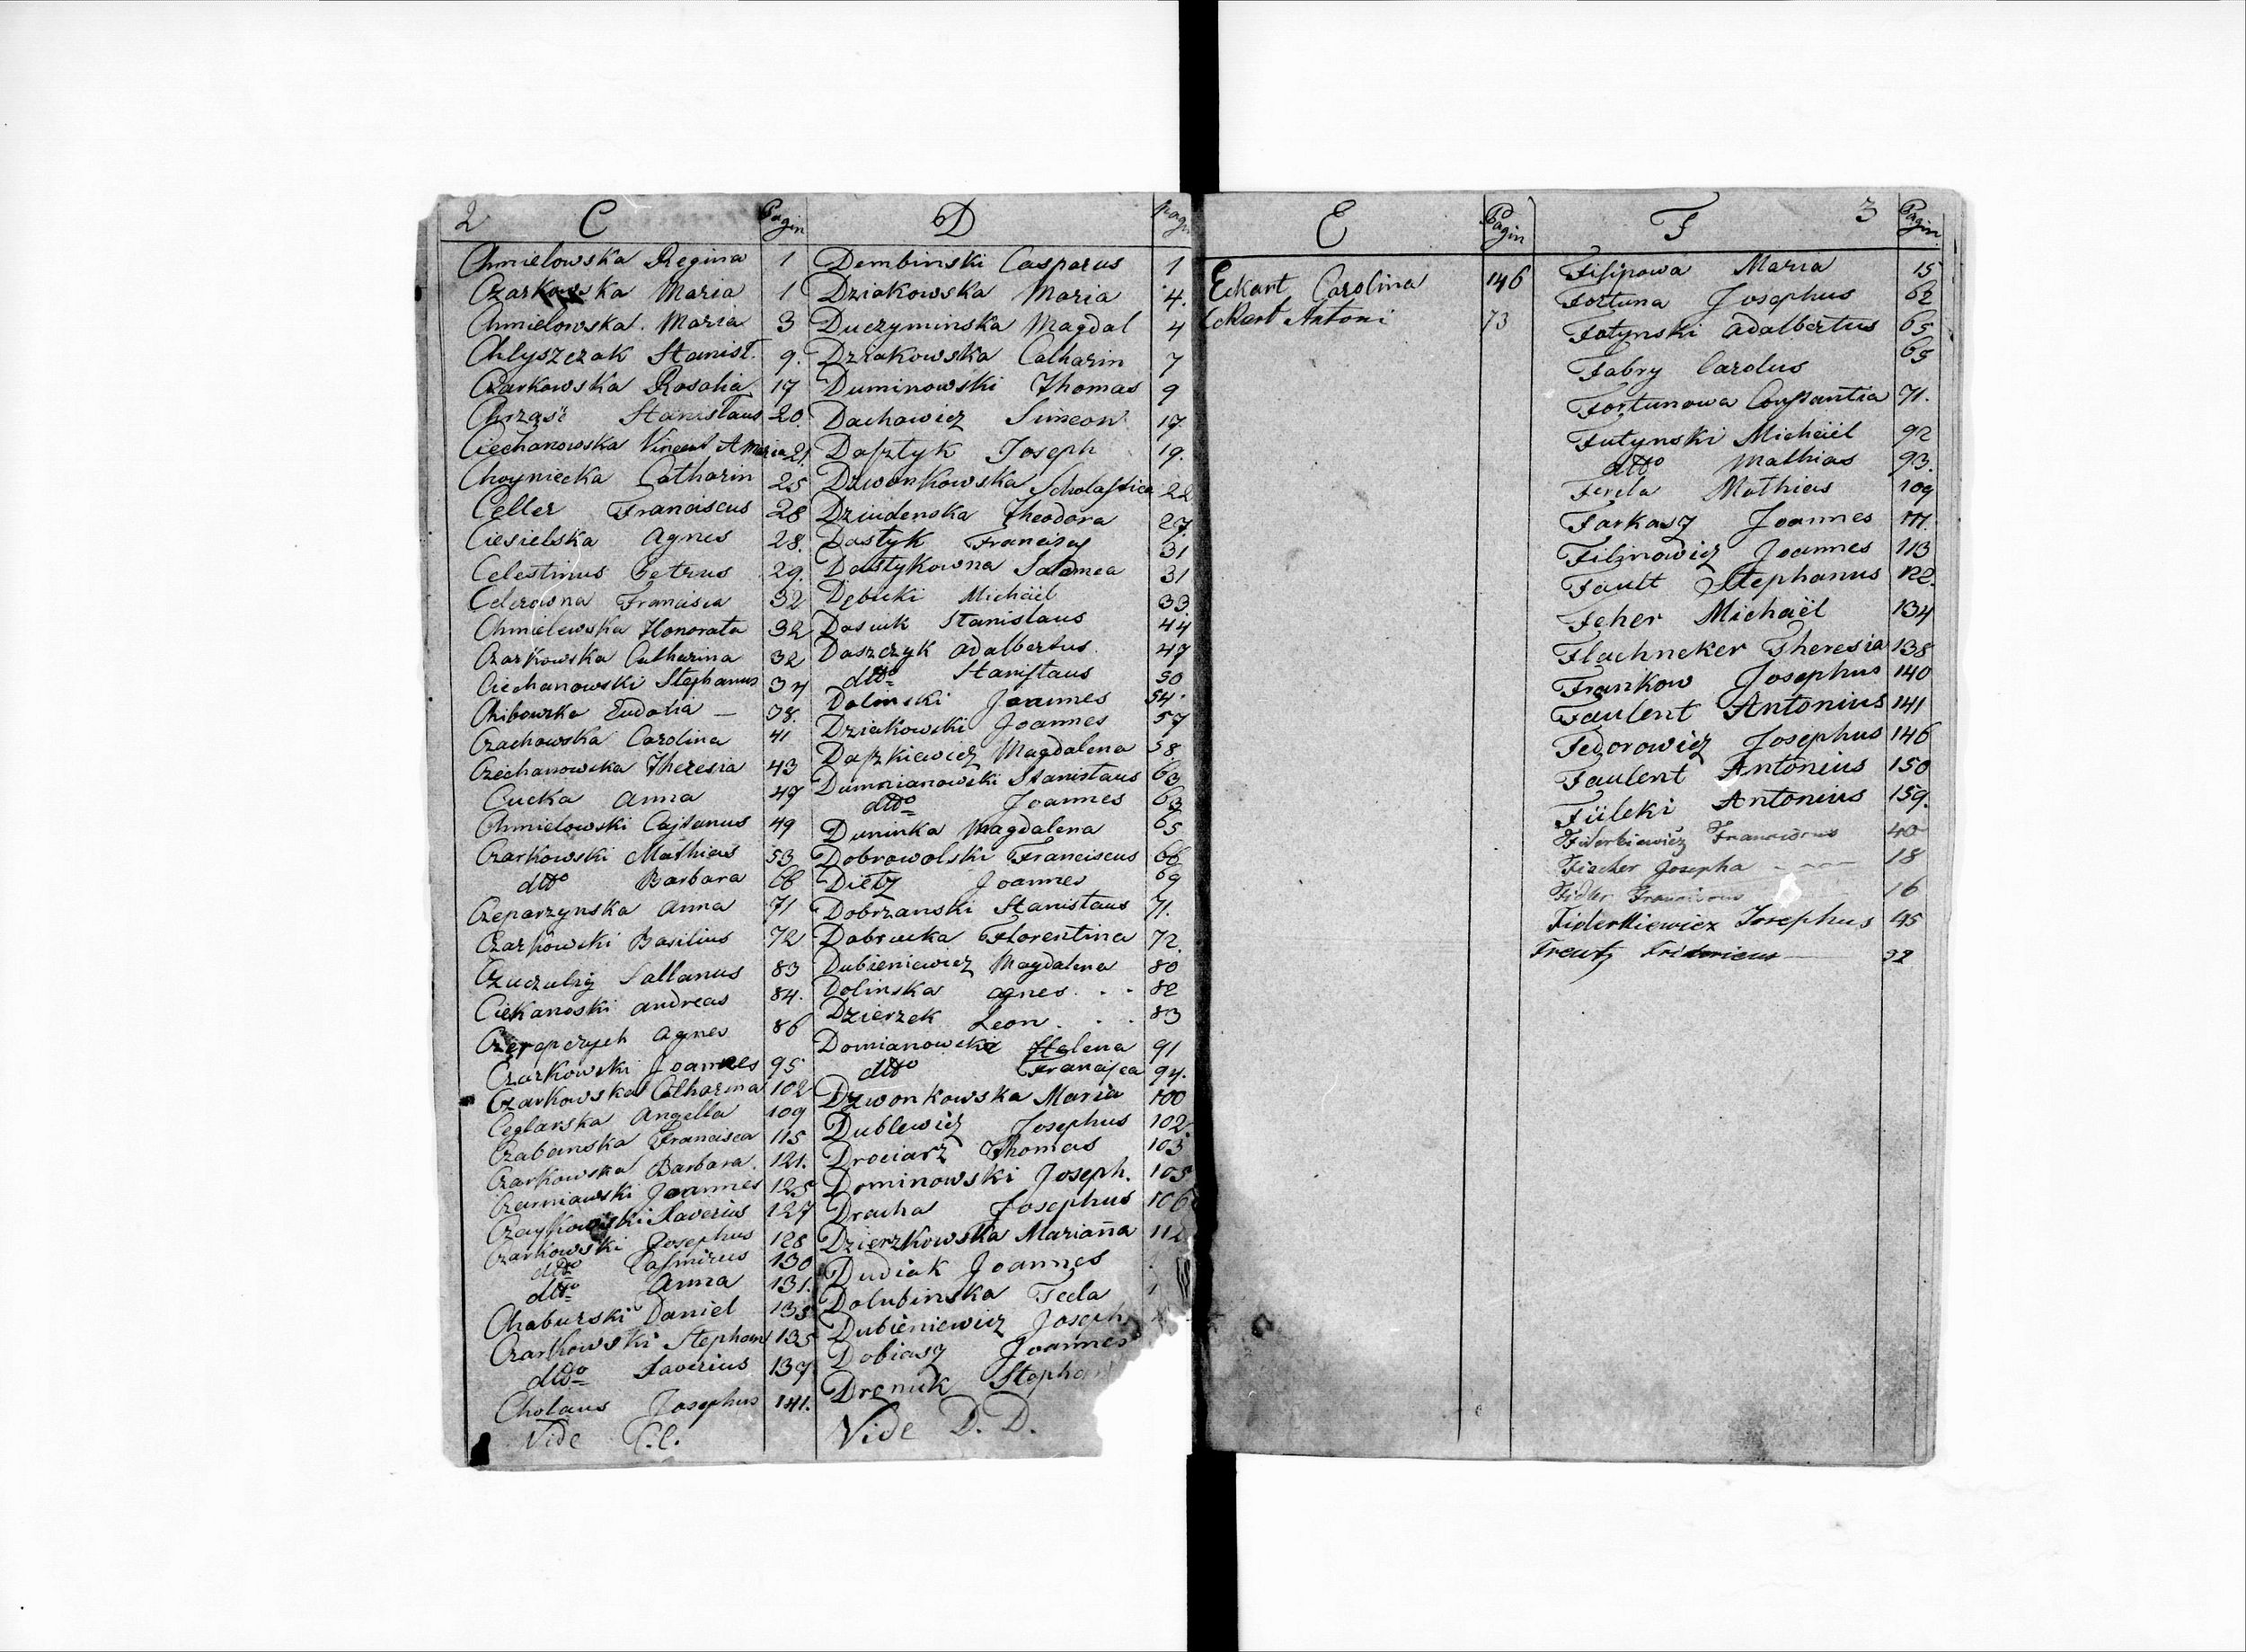 2 C Pagin
Chmielowska Regina 1
Czarkowska Maria 1
Chmielowska Maria 3
Chlyszczak Stanisł. 9.
Czarkowska Rosalia 17
Chrząść Stanislaus 20.
Ciechanowska Vincent A Maria 21.
Choyniecka Catharin 25
Celler Franciscus 28
Ciesielska Agnes 28.
Celestinus Petrus 29.
Celerowna Francisca 32
Chmielewska Honorata 32
Czarkowska Catharina 32
Ciechanowski Stephanus 37
Chibowska Eudoxia — 38.
Czachowska Carolina 41
Czechanowska Theresia 43
Cucka Anna 47
Chmielowski Cajtanus 49
Czarkowski Mathias 53
dtto Barbara 66
Czeparzynska Anna 71
Czarkowski Basilius 72
Sallanus 83
Ciekanoski Andreas 84.
Agnes 86
Czarkowski Joannes 95
Czarkowska Catharina 102
Ceglarska Angella 109
Czabanska Francisca 115
Czarkowska Barbara. 121.
Czarniawski Joannes 125
Czaykowski Xaverius 127
Czarkowski Josephus 128
dtto Casimirus 130
dtto Anna 131.
Chaburski Daniel 133
Czarkowski Stephan 135
dtto Xaverius 139
Cholaus Josephus 141.
Vide C.C.
D Pagin
Dembinski Casparus 1
Dziakowska Maria 4.
Duczyminska Magdal 4
Dziakowska Catharin 7
Duminowski Thomas 9
Dachowicz Simeon 17
Dasztyk Joseph 19.
Dzwonkowska Scholastica 22
Dziudenska Theodora 27.
Dastyk Francisg 31
Dastykowna Salomea 31
Dębicki Michaël 33.
Dasiuk Stanislaus 44
Daszczyk Adalbertus. 47
dtto Stanislaus 50
Dolinski Joannes 54.
Dziakowski Joannes 57
Daszkiewicz Magdalena 58
Dumnianowski Stanislaus 63
dtto Joannes 63
Duninka Magdalena 65
Dobrowolski Franciscus 66
Dietz Joannes 69
Dobrzanski Stanislaus 71.
Dabrucka Florentina 72.
Dubieniewicz Magdalena 80
Dolinska Agnes . . 82
Dzierzek Leon . . . 83
Domianowski Helena 91
dtto Francisca 94.
Dzwonkowska Maria 100
Dublewicz Josephus 102
Drociarz Thomas 103
Dominowski Joseph. 105
Dracha Josephus 106
Dzierzkowska Marianna 112
Dudiak Joannes
Dolubinska Tecla 1
Dubieniewicz Joseph
Dobiasz Joannes
Drenick Stephan
Vide D.D.
E Pagin
Eckart Carolina 146
Eckart Antoni 73
F 3 Pagin.
Filipowa Maria 15
Fortuna Josephus 62
Fotynski Adalbertus 65
Fabry Carolus 65
Fortunowa Constantia 71.
Futynski Michaël 92
dtto Mathias 93.
Ferela Mathias 109
Farkasz Joannes 111.
Filinowicz Joannes 113
Fault Stephanus 122.
Feher Michaël 134
Flachneker Theresia 138
Frankow Josephus 140
Faulent Antonius 141
Fedorowicz Josephus 146
Faulent Antonius 150
Füleki Antonius 159.
Fiderkiewicz Franciscus 40
Fiacher Josepha 18
Fidler Franciscus 16
Fiderkiewicz Josephus 45
Freutz Fridericus 32